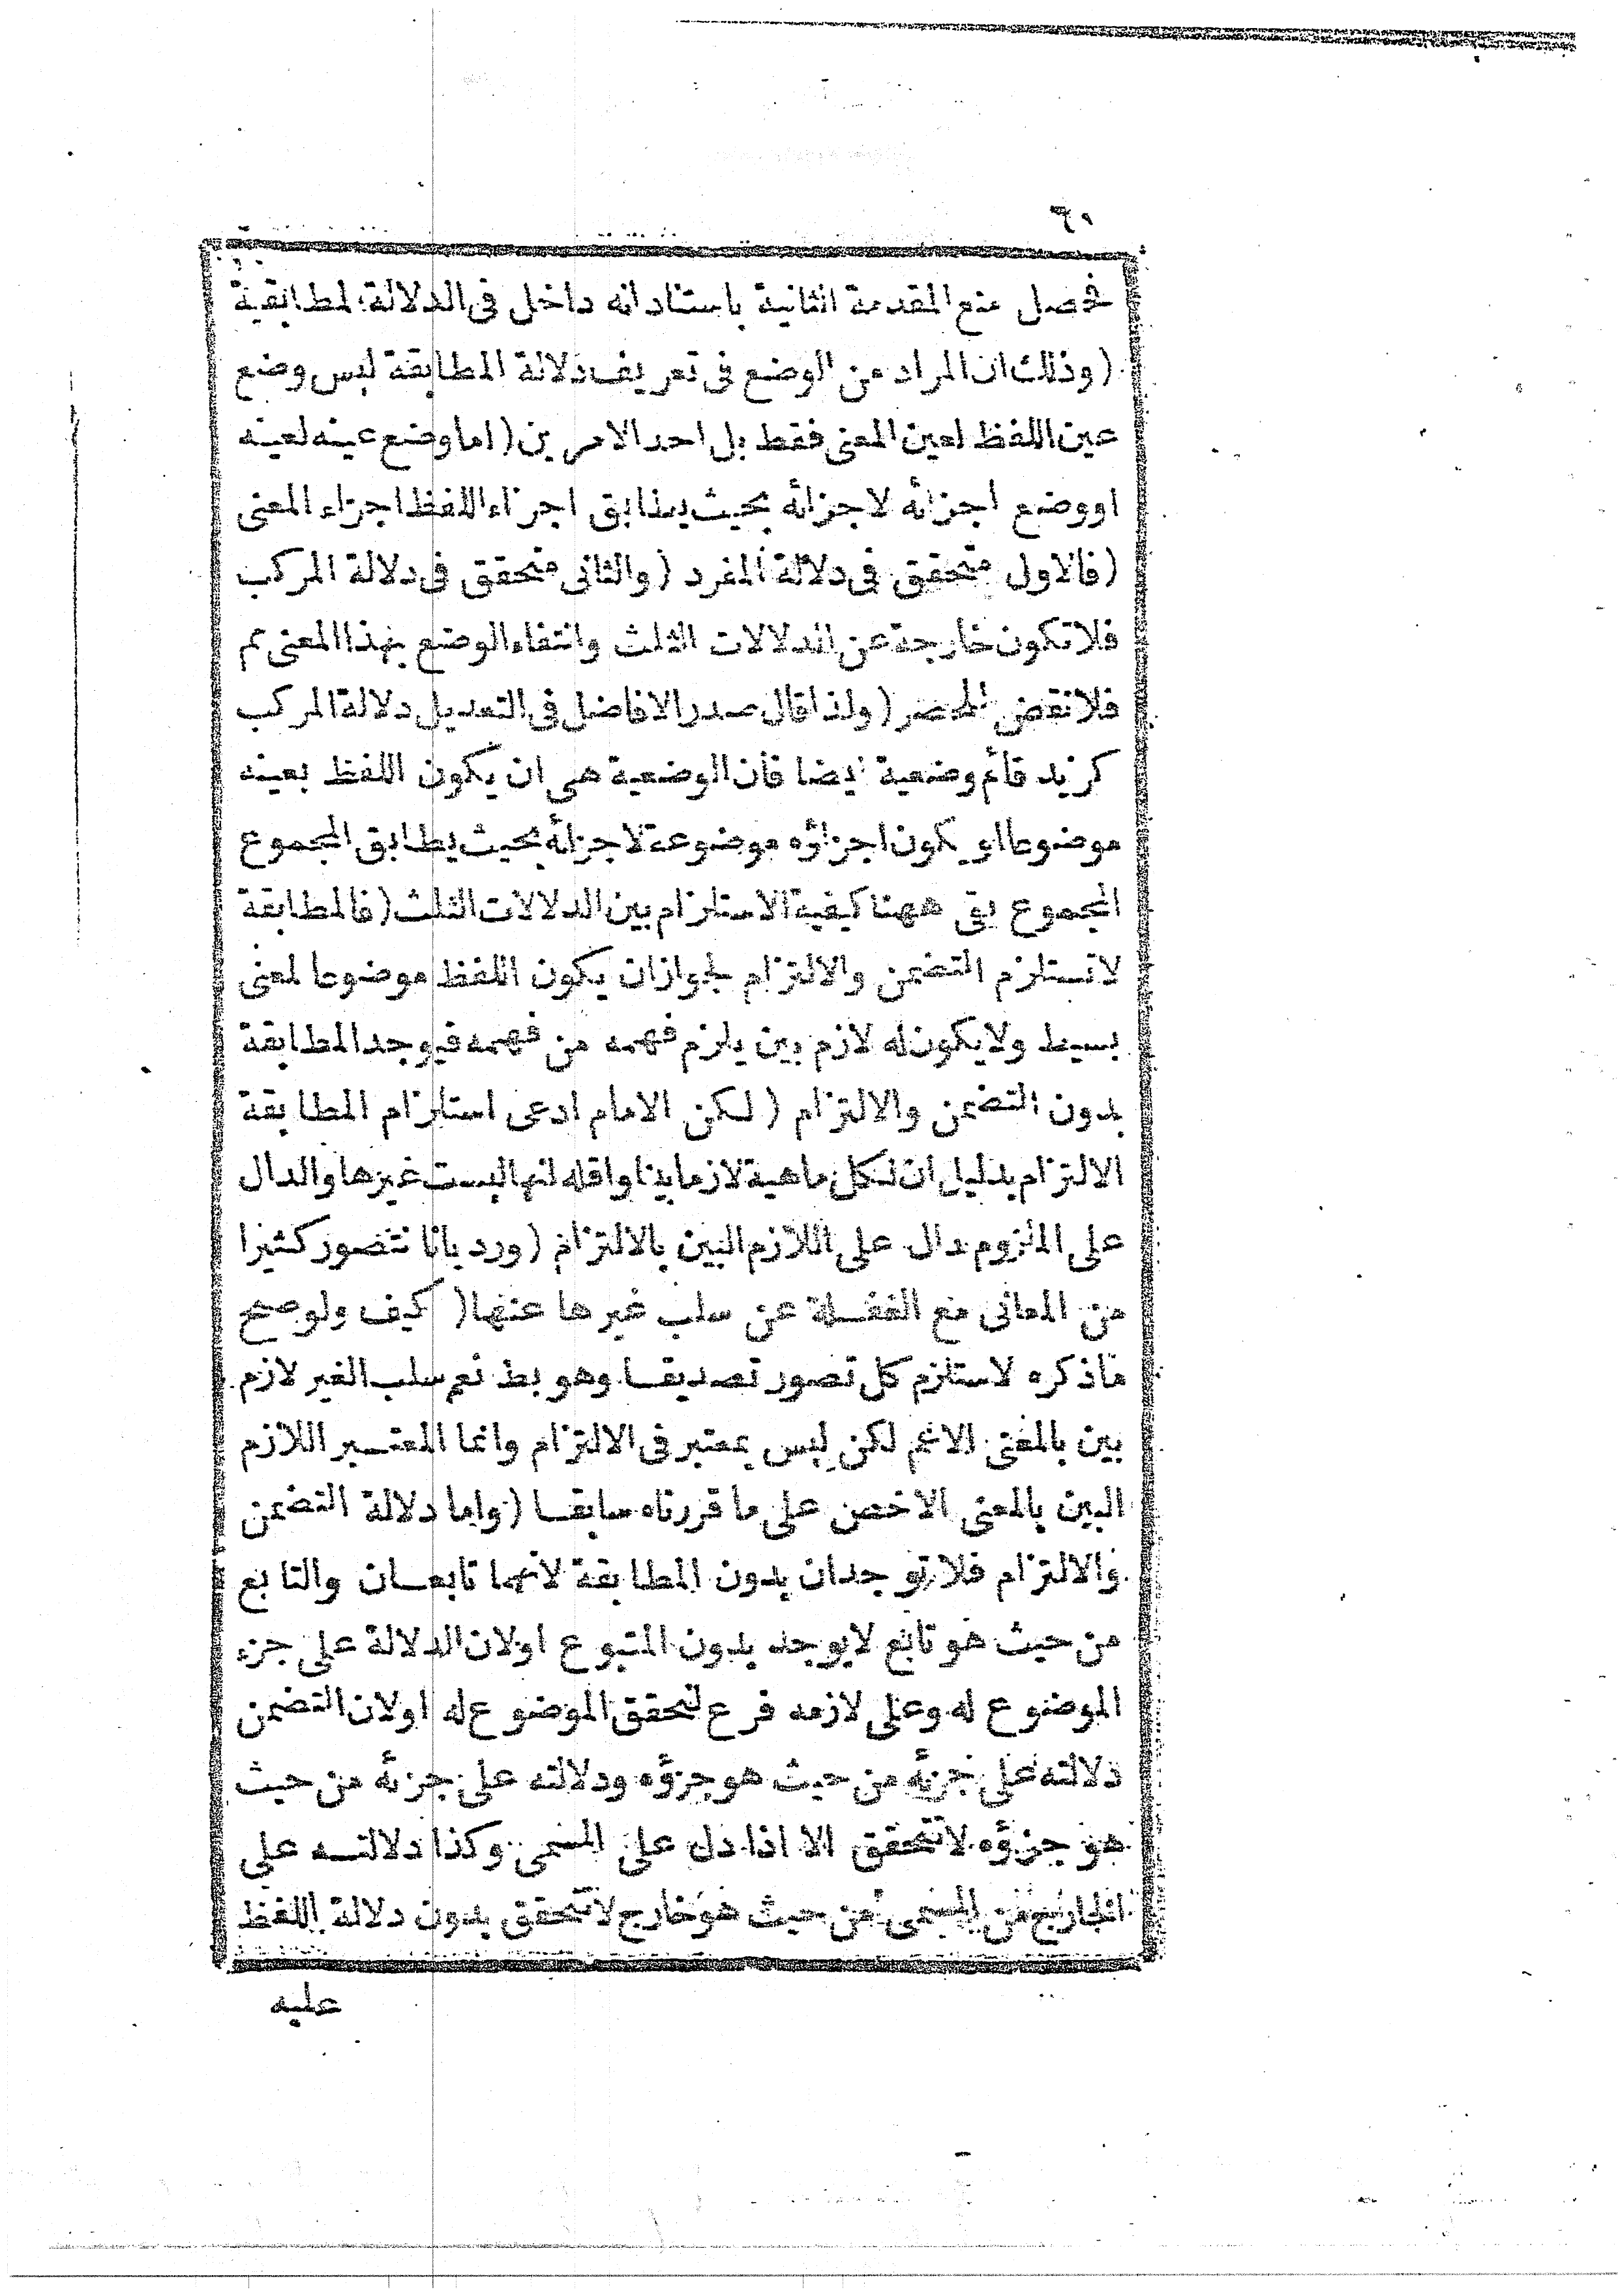 ٦٠
محصل منع المقدمة الثانية باستناد انه داخل فى الدلالة المطابقية
(وذلك ان المراد من الوضع فى تعريف دلالة المطابقة ليس وضع
عين اللفظ لعين المعنى فقط بل احد الامرين (اما وضع عينه لعينه
او وضع اجزائه لاجزائه بحيث يطابق اجزاء اللفظ اجزاء المعنى
(فالاول متحقق فى دلالة المفرد (والثانى متحقق فى دلالة المركب
فلا تكون خارجة عن الدلالات الثلث وانتفاء الوضع بهذا المعنى مم
فلا نقض للحصر (ولذا قال صدر الافاضل فى التعديل دلالة المركب
كزيد قائم وضعية ايضا فان الوضعية هى ان يكون اللفظ بعينه
موضوعا او يكون اجزاؤه موضوعة لاجزائه بحيث يطابق المجموع
المجموع بقى ههنا كيفية الاستلزام بين الدلالات الثلث (فالمطابقة
لا تستلزم التضمن والالتزام لجواز ان يكون اللفظ موضوعا لمعنى
بسيط ولا يكون له لازم بين يلزم فهمه من فهمه فيوجد المطابقة
بدون التضمن والالتزام (لكن الامام ادعى استلزام المطابقة
الالتزام بدليل ان لكل ماهية لازما بينا واقله انها ليست غيرها والدال
على الملزوم دال على اللازم البين بالالتزام (ورد بانا نتصور كثيرا
من المعانى مع الغفلة عن سلب غيرها عنها (كيف ولو صح
ما ذكره لاستلزم كل تصور تصديقا وهو بط نعم سلب الغير لازم
بين بالمعنى الاعم لكن ليس بمعتبر فى الالتزام وانما المعتبر اللازم
البين بالمعنى الاخص على ما قررناه سابقا (واما دلالة التضمن
والالتزام فلا توجدان بدون المطابقة لانهما تابعان والتابع
من حيث هو تابع لا يوجد بدون المتبوع او لان الدلالة على جزء
الموضوع له وعلى لازمه فرع لتحقق الموضوع له او لان التضمن
دلالته على جزئه من حيث هو جزؤه ودلالته على جزئه من حيث
هو جزؤه لا تتحقق الا اذا دل على المسمى وكذا دلالته على
الخارج من المسمى من حيث هو خارج لا تتحقق بدون دلالة اللفظ
عليه